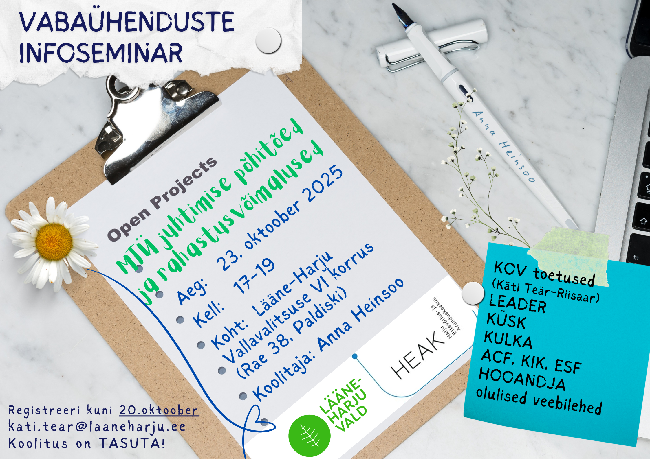 VABAÜHENDUSTE
INFOSEMINAR
Open Projects
MTÜ juhtimise põhitõed
ja rahastusvõimalused
Aeg: 23. oktoober 2025
Kell: 17-19
Koht: Lääne-Harju
Vallavalitsuse VI korrus
(Rae 38, Paldiski)
Koolitaja: Anna Heinsoo
LÄÄNE-
HARJU
VALD
HEAK
Anna Heinsoo
KOV toetused
(Käti Teär-Riisaar)
LEADER
KÜSK
KULKA
ACF, KIK, ESF
HOOANDJA
olulised veebilehed
Registreeri kuni 20.oktoober
kati.tear@laaneharju.ee
Koolitus on TASUTA!